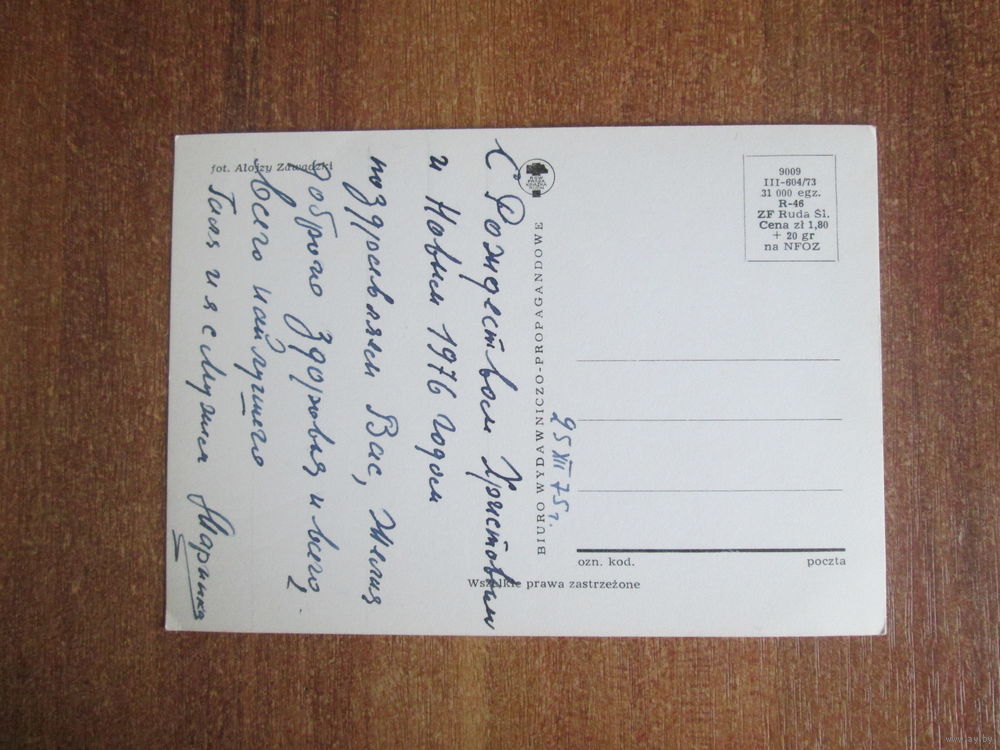 fot. Alojzy Zawadzki
С Рождеством Христовым
и Новым 1976 годом
поздравляем Вас, Желая
доброго здоровья и всего,
всего найлучшего
Галя и я с Мужем
Маринка
BIURO WYDAWNICZO-PROPAGANDOWE
25 XII 75 г.
9009
III-604/73
31 000 egz.
R-46
ZF Ruda Śl.
Cena zł 1,80
+ 20 gr
na NFOZ
ozn. kod. poczta
Wszelkie prawa zastrzeżone
www.ay.by